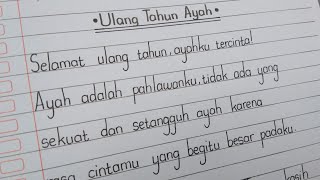 •Ulang Tahun Ayah•
Selamat ulang tahun, ayahku tercinta!
Ayah adalah pahlawanku, tidak ada yang
sekuat dan setangguh ayah karena
cintamu yang begitu besar padaku.